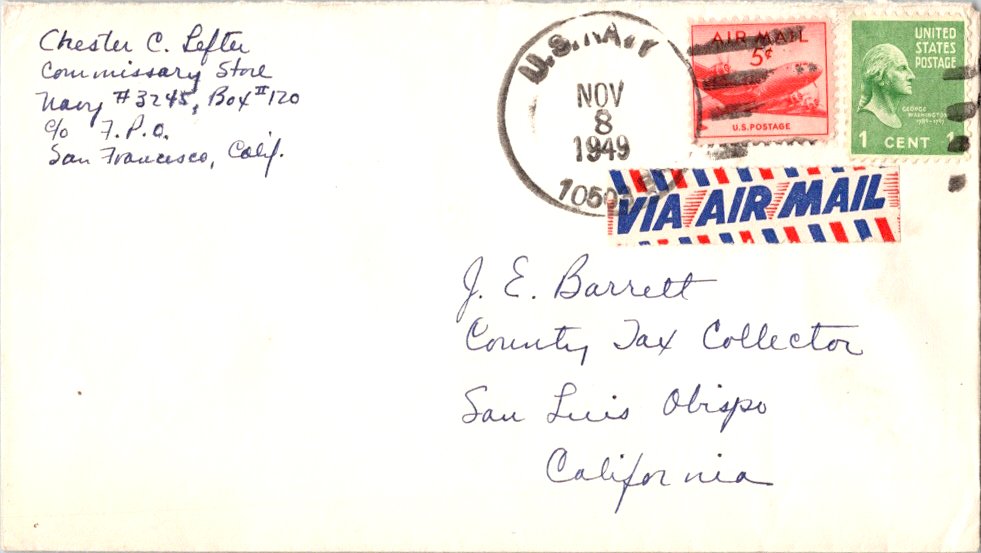 Chester C. Lefter
Commissary Store
Navy #3245, Box #120
c/o F.P.O.
San Francesco, Calif.
U.S. NAVY
NOV
8
1949
AIR MAIL
5¢
U.S. POSTAGE
UNITED
STATES
POSTAGE
GEORGE
WASHINGTON
1789-1797
1 CENT 1
VIA AIR MAIL
J. E. Barrett
County Tax Collector
San Luis Obispo
California